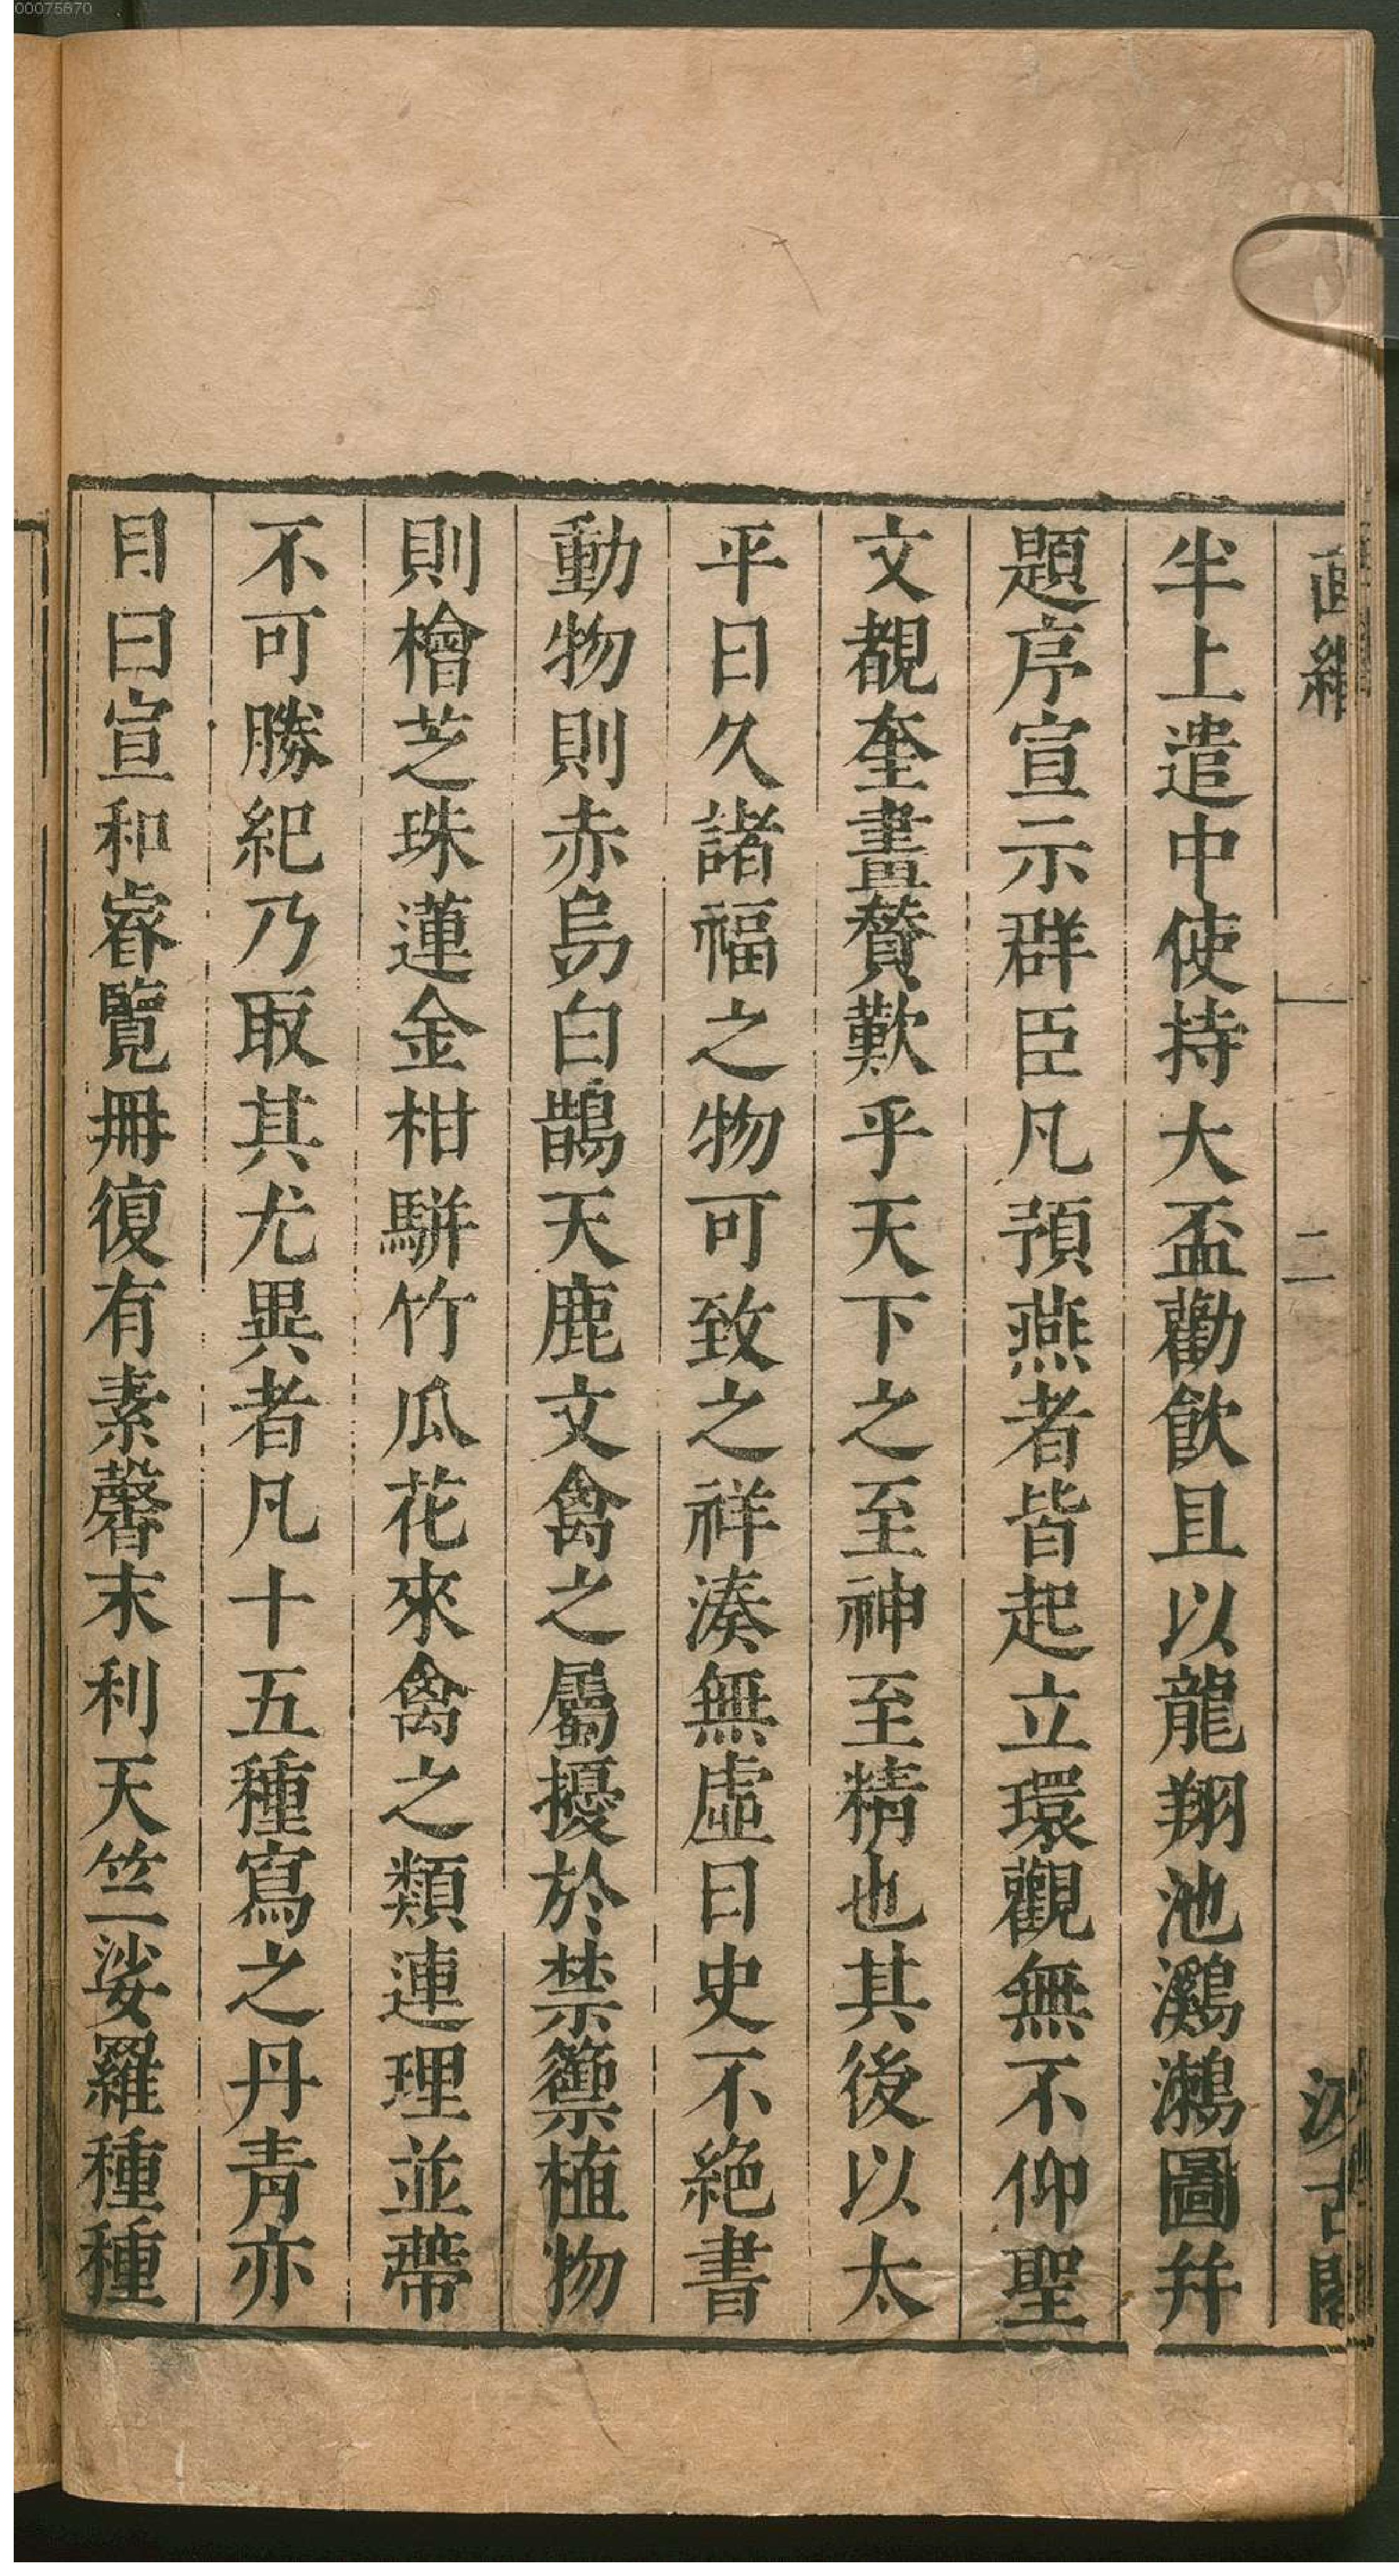 00075670
畫繼
二
汲古閣
半上遣中使持大盃勸飲且以龍翔池鸂鶒圖并
題序宣示群臣凡預燕者皆起立環觀無不仰聖
文覩奎畫贊歎乎天下之至神至精也其後以太
平日久諸福之物可致之祥湊無虛日史不絶書
動物則赤烏白鵲天鹿文禽之屬擾於禁籞植物
則檜芝珠蓮金柑駢竹瓜花來禽之類連理並蔕
不可勝紀乃取其尤異者凡十五種寫之丹青亦
目曰宣和睿覽冊復有素馨末利天竺娑羅種種